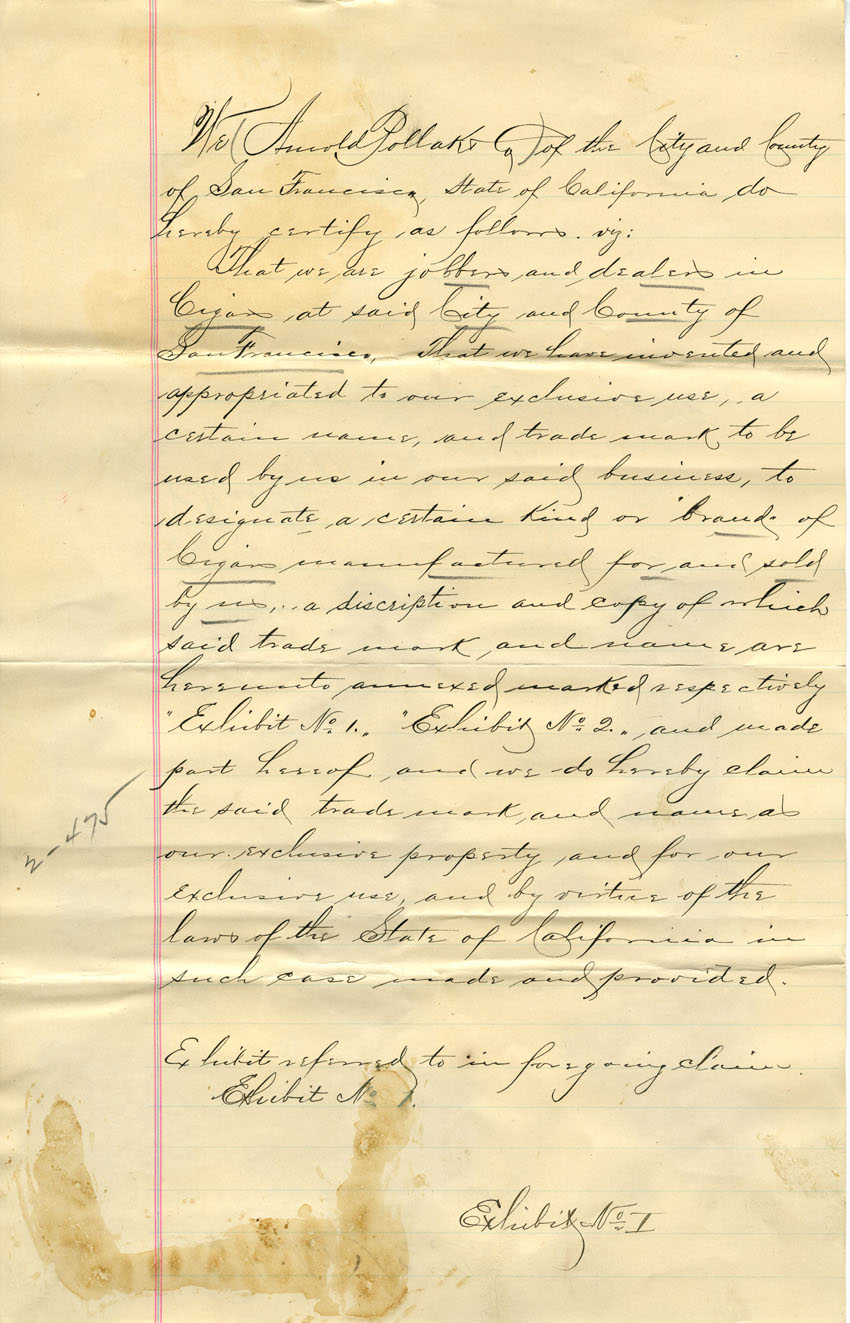 We (Arnold Pollak & Co) of the City and County
of San Francisco, State of California do
hereby certify as follows. viz:
That we are jobbers and dealers in
Cigars at said City and County of
San Francisco, That we have invented and
appropriated to our exclusive use, a
certain name, and trade mark to be
used by us in our said business, to
designate a certain kind or "brand" of
Cigars manufactured for and sold
by us, a discription and copy of which
said trade mark and name are
hereunto annexed marked respectively
"Exhibit No. 1." "Exhibit No. 2." and made
part hereof and we do hereby claim
the said trade mark and name as
our exclusive property and for our
exclusive use, and by virtue of the
laws of the State of California in
such case made and provided.
2-475
Exhibit referred to in foregoing claim.
Exhibit No. 1.
Exhibit No. I